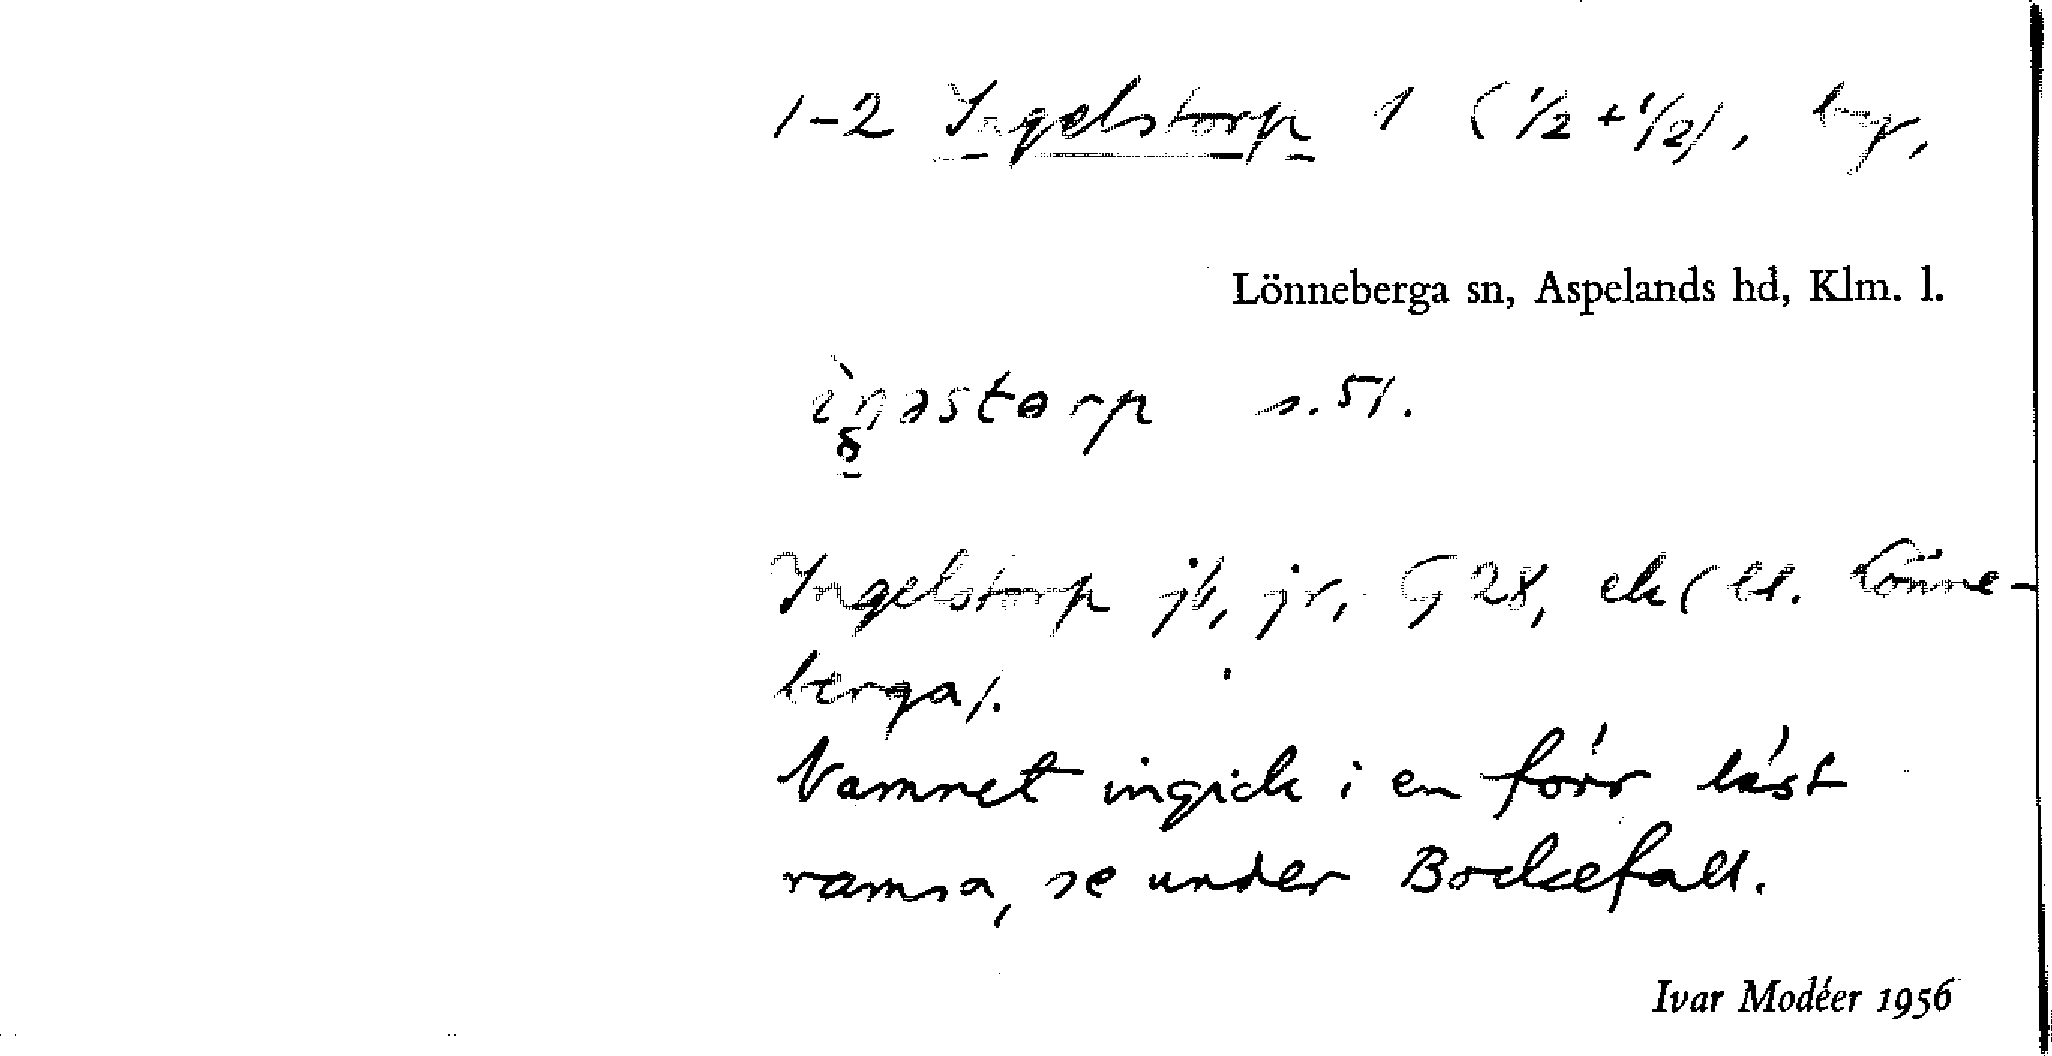 1-2 Ingelstorp 1 (1/2 + 1/2), by,
Lönneberga sn, Aspelands hd, Klm. l.
ìŋəstɵrp s. 51.
Ingelstorp jb, jr, G 28, ek (bl. Lönne-
berga).
Namnet ingick i en förr läst
ramsa, se under Bockefall.
Ivar Modéer 1956